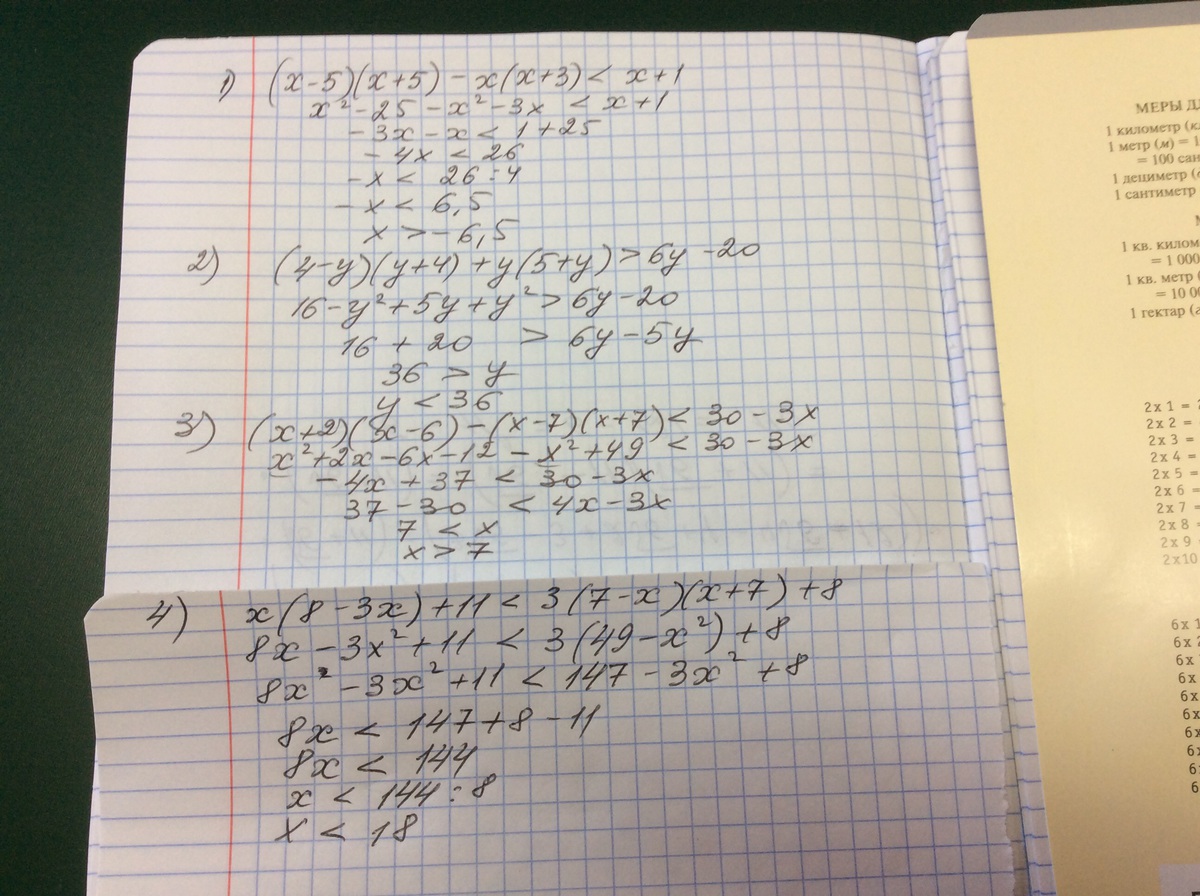 1) (x-5)(x+5) - x(x+3) < x+1
x² - 25 - x² - 3x < x+1
-3x - x < 1 + 25
-4x < 26
-x < 26 : 4
-x < 6,5
x > -6,5
2) (4-y)(y+4) + y(5+y) > 6y - 20
16 - y² + 5y + y² > 6y - 20
16 + 20 > 6y - 5y
36 > y
y < 36
3) (x+2)(x-6) - (x-7)(x+7) < 30 - 3x
x² + 2x - 6x - 12 - x² + 49 < 30 - 3x
-4x + 37 < 30 - 3x
37 - 30 < 4x - 3x
7 < x
x > 7
4) x(8 - 3x) + 11 < 3(7-x)(x+7) + 8
8x - 3x² + 11 < 3(49 - x²) + 8
8x - 3x² + 11 < 147 - 3x² + 8
8x < 147 + 8 - 11
8x < 144
x < 144 : 8
x < 18
МЕРЫ
1 километр
1 метр (м) = 1
= 100
1 дециметр
1 сантиметр
1 кв.
= 1 000
1 кв. метр
= 10
1 гектар
2x 1 =
2x 2 =
2x 3 =
2x 4 =
2x 5 =
2x 6 =
2x 7 =
2x 8 =
2x 9 =
2x10
6x 1
6x
6x
6x
6x
6x
6x
6x
6x
6